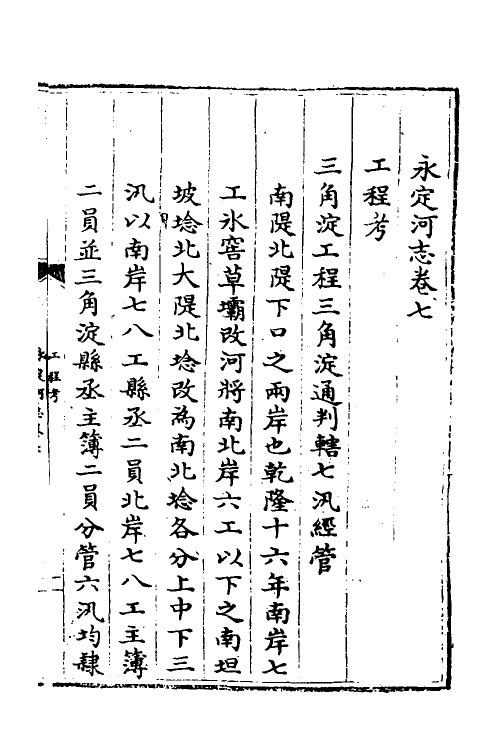 永定河志卷七
工程考
三角淀工程三角淀通判轄七汛經管
南隄北隄下口之兩岸也乾隆十六年南岸七
工氷窖草壩改河將南北岸六工以下之南坦
坡埝北大隄北埝改為南北埝各分上中下三
汛以南岸七八工縣丞二員北岸七八工主簿
二員並三角淀縣丞主簿二員分管六汛均隸
工程考
永定河志卷七